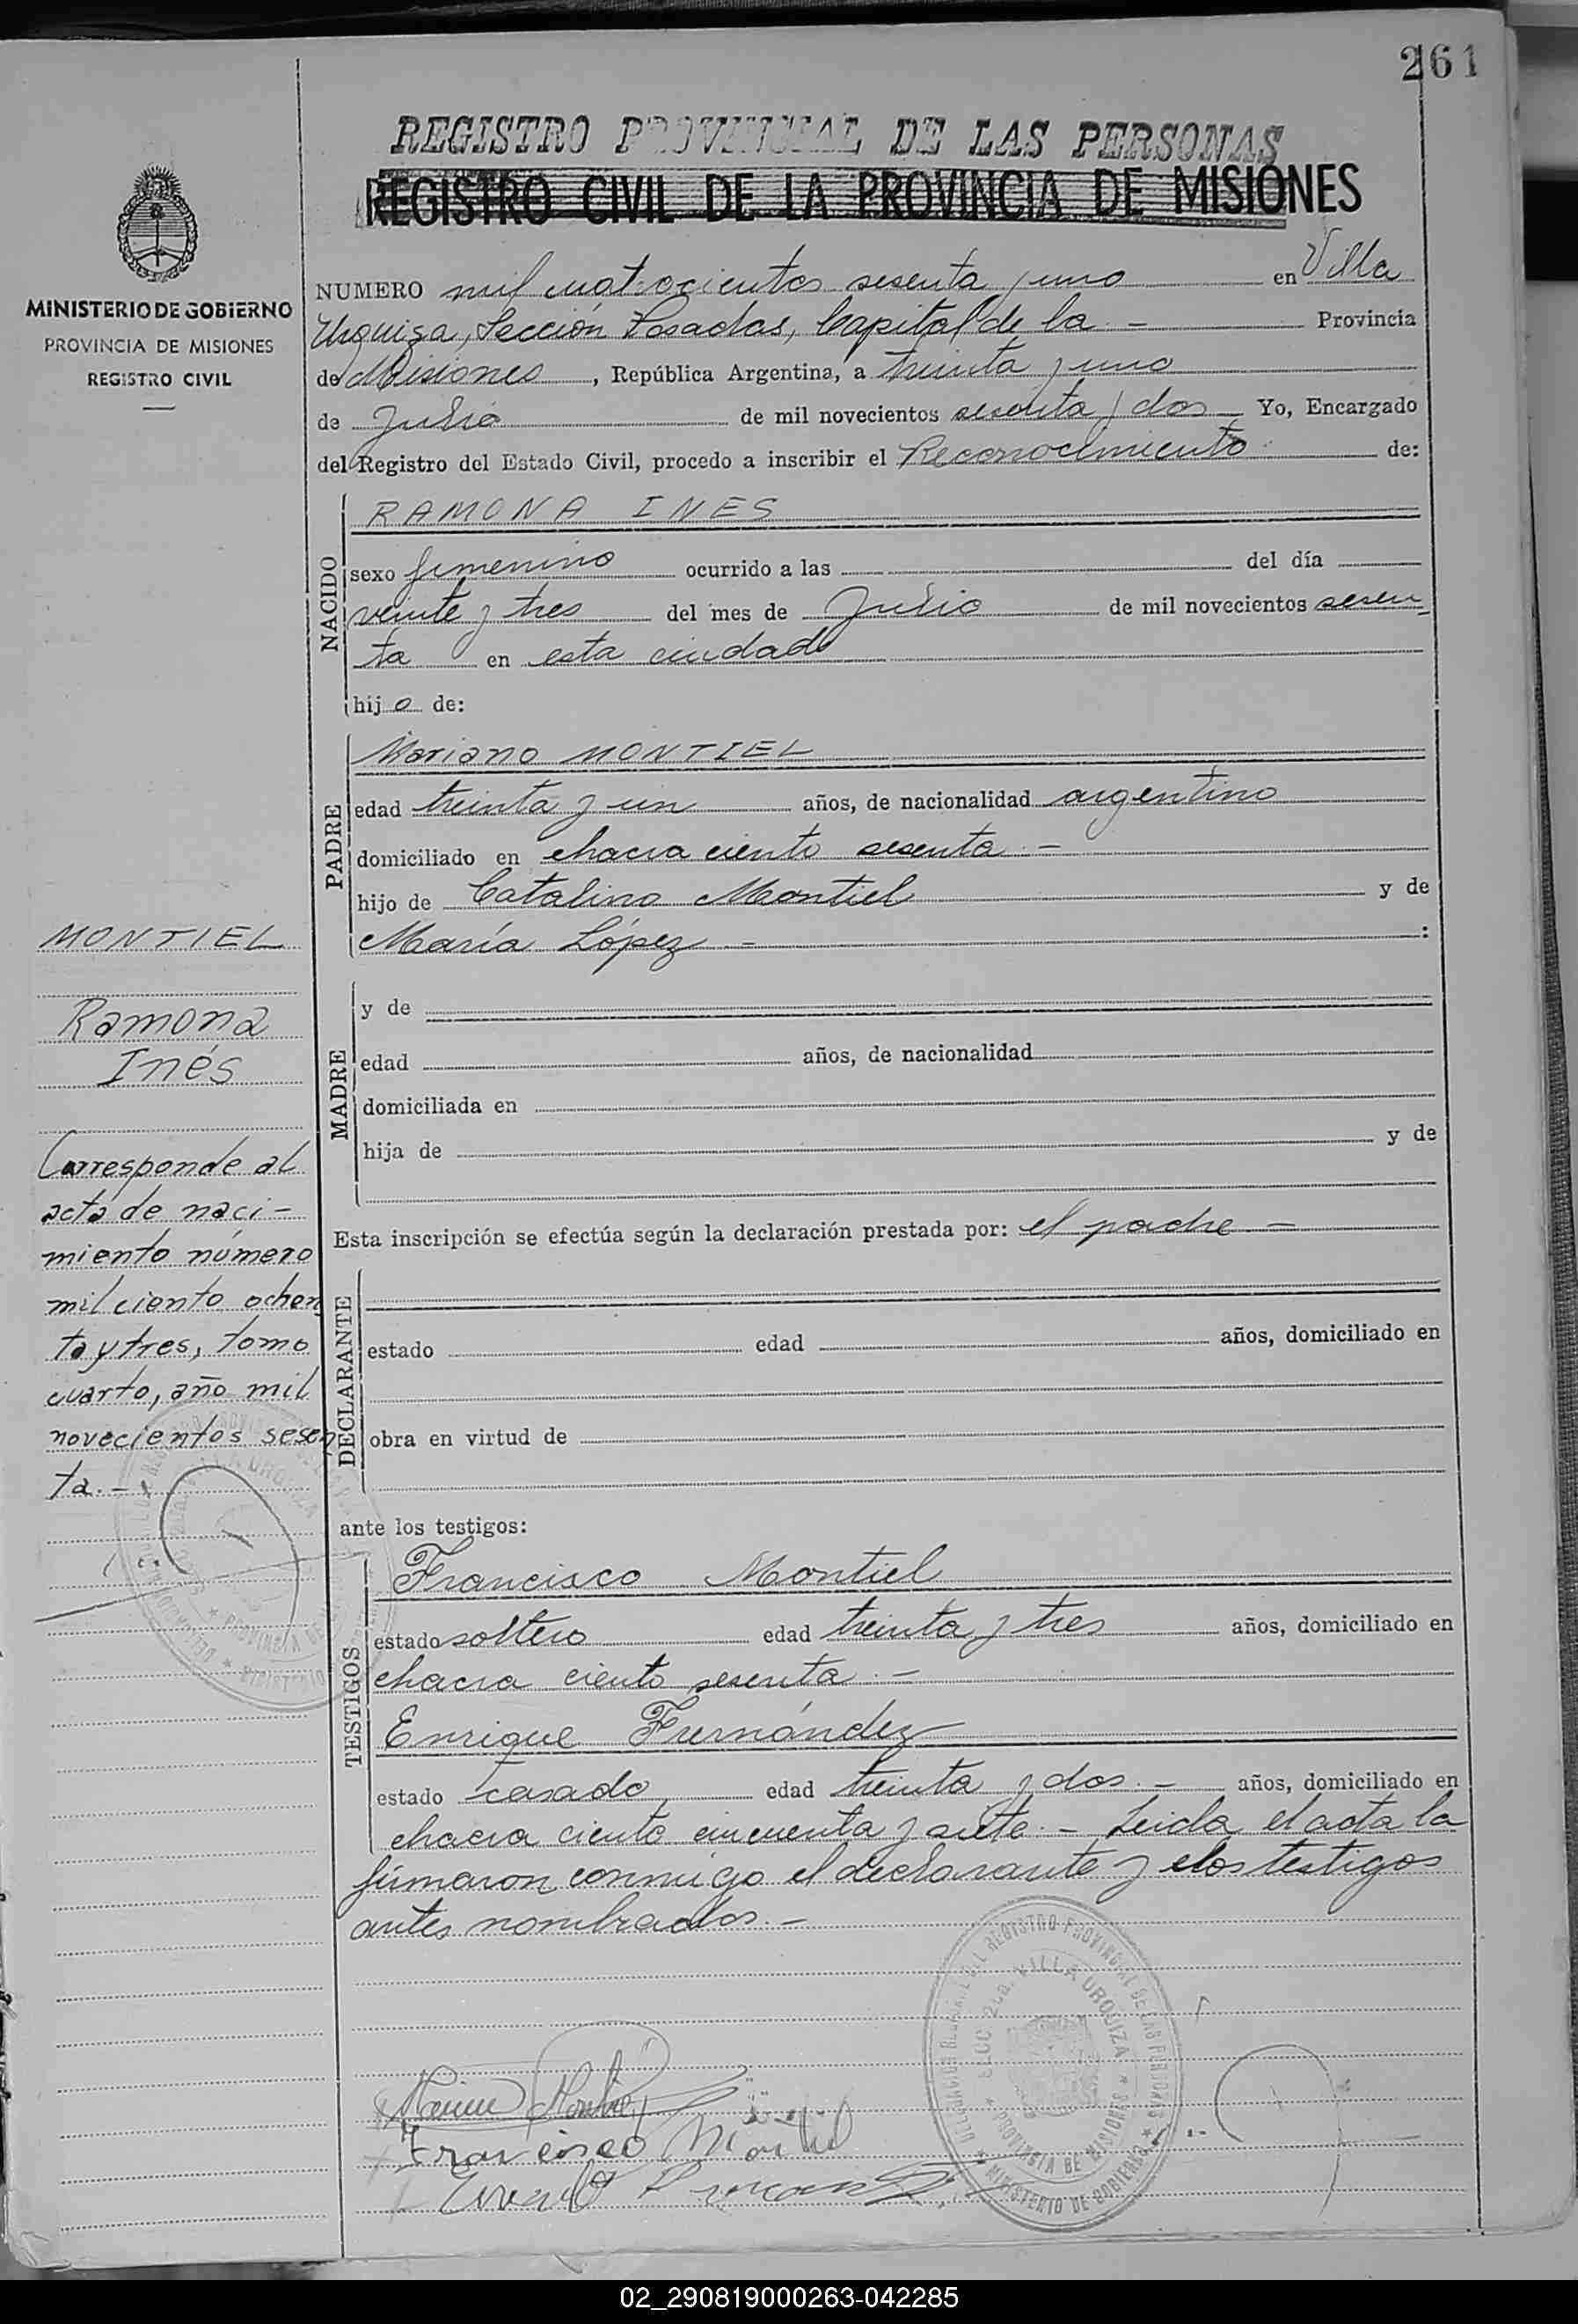 261
REGISTRO PROVINCIAL DE LAS PERSONAS
REGISTRO CIVIL DE LA PROVINCIA DE MISIONES
MINISTERIO DE GOBIERNO
PROVINCIA DE MISIONES
REGISTRO CIVIL
NUMERO mil cuatrocientos sesenta y uno en Villa
Urquiza, Sección Posadas, Capital de la - Provincia
de Misiones, República Argentina, a treinta y uno
de Julio de mil novecientos sesenta y dos Yo, Encargado
del Registro del Estado Civil, procedo a inscribir el Reconocimiento de:
NACIDO
RAMONA INES
sexo femenino ocurrido a las del día
veinte y tres del mes de Julio de mil novecientos sesen
ta en esta ciudad
hija de:
PADRE
Mariano MONTIEL
edad treinta y un años, de nacionalidad argentino
domiciliado en chacra ciento sesenta -
hijo de Catalino Montiel y de
María López - :
MADRE
y de
edad años, de nacionalidad
domiciliada en
hija de y de
Esta inscripción se efectúa según la declaración prestada por: el padre -
DECLARANTE
estado edad años, domiciliado en
obra en virtud de
ante los testigos:
TESTIGOS
Francisco Montiel
estado soltero edad treinta y tres años, domiciliado en
chacra ciento sesenta. -
Enrique Fernández
estado casado edad treinta y dos. - años, domiciliado en
chacra ciento cincuenta y siete. - Leida el acta la
firmaron conmigo el declarante y los testigos
antes nombrados. -
MONTIEL
Ramona
Inés
Corresponde al
acta de naci-
miento número
mil ciento ochen
ta y tres, tomo
cuarto, año mil
novecientos sesen
ta. -
Francisco Montiel
REGISTRO PROVINCIAL DE LAS PERSONAS
VILLA URQUIZA
PROVINCIA DE MISIONES
MINISTERIO DE GOBIERNO
02_290819000263-042285